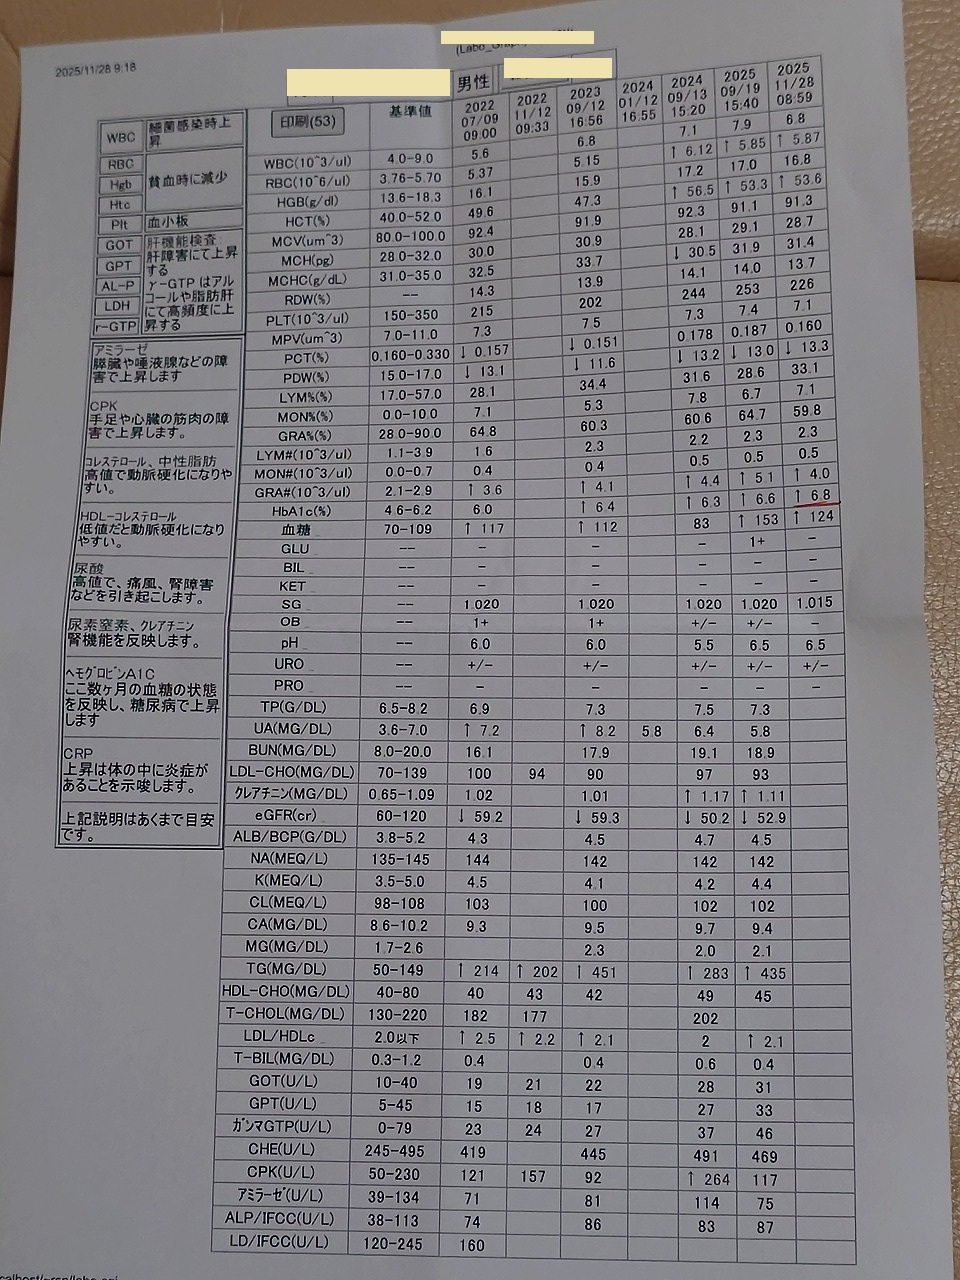 2025/11/28 9:18
(Labo_Grap
男性
印刷(53)
基準値
2022 07/09 09:00
2022 11/12 09:33
2023 09/12 16:56
2024 01/12 16:55
2024 09/13 15:20
2025 09/19 15:40
2025 11/28 08:59
WBC 細菌感染時上昇
RBC
Hgb 貧血時に減少
Htc
Plt 血小板
GOT 肝機能検査
GPT 肝障害にて上昇する
AL-P γ-GTPはアルコールや脂肪肝にて高頻度に上昇する
LDH
r-GTP
アミラーゼ
膵臓や唾液腺などの障
害で上昇します
CPK
手足や心臓の筋肉の障
害で上昇します。
コレステロール、中性脂肪
高値で動脈硬化になりや
すい。
HDL-コレステロール
低値だと動脈硬化になり
やすい。
尿酸
高値で、痛風、腎障害
などを引き起こします。
尿素窒素、クレアチニン
腎機能を反映します。
ヘモグロビンA1C
ここ数ヶ月の血糖の状態
を反映し、糖尿病で上昇
します
CRP
上昇は体の中に炎症が
あることを示唆します。
上記説明はあくまで目安
です。
WBC(10^3/ul) 4.0-9.0 5.6 6.8 7.1 7.9 6.8
RBC(10^6/ul) 3.76-5.70 5.37 5.15 ↑ 6.12 ↑ 5.85 ↑ 5.87
HGB(g/dl) 13.6-18.3 16.1 15.9 17.2 17.0 16.8
HCT(%) 40.0-52.0 49.6 47.3 ↑ 56.5 ↑ 53.3 ↑ 53.6
MCV(um^3) 80.0-100.0 92.4 91.9 92.3 91.1 91.3
MCH(pg) 28.0-32.0 30.0 30.9 28.1 29.1 28.7
MCHC(g/dL) 31.0-35.0 32.5 33.7 ↓ 30.5 31.9 31.4
RDW(%) -- 14.3 13.9 14.1 14.0 13.7
PLT(10^3/ul) 150-350 215 202 244 253 226
MPV(um^3) 7.0-11.0 7.3 7.5 7.3 7.4 7.1
PCT(%) 0.160-0.330 ↓ 0.157 ↓ 0.151 0.178 0.187 0.160
PDW(%) 15.0-17.0 ↓ 13.1 ↓ 11.6 ↓ 13.2 ↓ 13.0 ↓ 13.3
LYM%(%) 17.0-57.0 28.1 34.4 31.6 28.6 33.1
MON%(%) 0.0-10.0 7.1 5.3 7.8 6.7 7.1
GRA%(%) 28.0-90.0 64.8 60.3 60.6 64.7 59.8
LYM#(10^3/ul) 1.1-3.9 1.6 2.3 2.2 2.3 2.3
MON#(10^3/ul) 0.0-0.7 0.4 0.4 0.5 0.5 0.5
GRA#(10^3/ul) 2.1-2.9 ↑ 3.6 ↑ 4.1 ↑ 4.4 ↑ 5.1 ↑ 4.0
HbA1c(%) 4.6-6.2 6.0 ↑ 6.4 ↑ 6.3 ↑ 6.6 ↑ 6.8
血糖 70-109 ↑ 117 ↑ 112 83 ↑ 153 ↑ 124
GLU -- - - - 1+ -
BIL -- - - - - -
KET -- - - - - -
SG -- 1.020 1.020 1.020 1.020 1.015
OB -- 1+ 1+ +/- +/- -
pH -- 6.0 6.0 5.5 6.5 6.5
URO -- +/- +/- +/- +/- +/-
PRO -- - - - - -
TP(G/DL) 6.5-8.2 6.9 7.3 7.5 7.3
UA(MG/DL) 3.6-7.0 ↑ 7.2 ↑ 8.2 5.8 6.4 5.8
BUN(MG/DL) 8.0-20.0 16.1 17.9 19.1 18.9
LDL-CHO(MG/DL) 70-139 100 94 90 97 93
クレアチニン(MG/DL) 0.65-1.09 1.02 1.01 ↑ 1.17 ↑ 1.11
eGFR(cr) 60-120 ↓ 59.2 ↓ 59.3 ↓ 50.2 ↓ 52.9
ALB/BCP(G/DL) 3.8-5.2 4.3 4.5 4.7 4.5
NA(MEQ/L) 135-145 144 142 142 142
K(MEQ/L) 3.5-5.0 4.5 4.1 4.2 4.4
CL(MEQ/L) 98-108 103 100 102 102
CA(MG/DL) 8.6-10.2 9.3 9.5 9.7 9.4
MG(MG/DL) 1.7-2.6 2.3 2.0 2.1
TG(MG/DL) 50-149 ↑ 214 ↑ 202 ↑ 451 ↑ 283 ↑ 435
HDL-CHO(MG/DL) 40-80 40 43 42 49 45
T-CHOL(MG/DL) 130-220 182 177 202
LDL/HDLc 2.0以下 ↑ 2.5 ↑ 2.2 ↑ 2.1 2 ↑ 2.1
T-BIL(MG/DL) 0.3-1.2 0.4 0.4 0.6 0.4
GOT(U/L) 10-40 19 21 22 28 31
GPT(U/L) 5-45 15 18 17 27 33
ガンマGTP(U/L) 0-79 23 24 27 37 46
CHE(U/L) 245-495 419 445 491 469
CPK(U/L) 50-230 121 157 92 ↑ 264 117
アミラーゼ(U/L) 39-134 71 81 114 75
ALP/IFCC(U/L) 38-113 74 86 83 87
LD/IFCC(U/L) 120-245 160